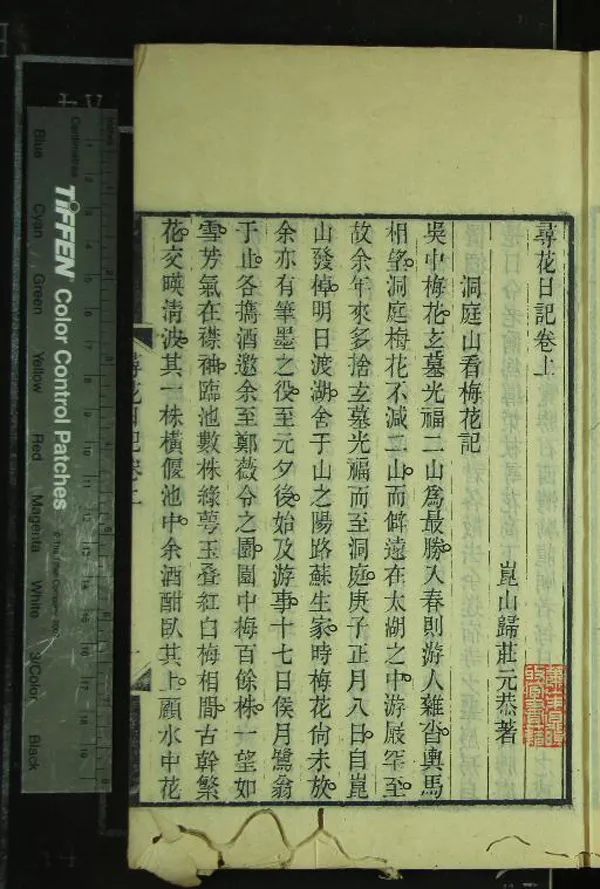 尋花日記卷上
崑山歸莊元恭著
洞庭山看梅花記
吳中梅花玄墓光福二山爲最勝入春則游人雜沓輿馬
相望洞庭梅花不減二山而僻遠在太湖之中游屐罕至
故余年來多捨玄墓光福而至洞庭庚子正月八日自崑
山發棹明日渡湖舍于山之陽路蘇生家時梅花尙未放
余亦有筆墨之役至元夕後始及游事十七日侯月鷺翁
于止各攜酒邀余至鄭薇令之園園中梅百餘株一望如
雪芳氣在襟袖臨池數株綠萼玉疊紅白梅相間古幹繁
花交暎淸波其一株橫偃池中余酒酣臥其上顧水中花
尋花日記卷上
TIFFEN Color Control Patches
© The Tiffen Company, 2007
Centimetres
Inches
Blue
Cyan
Green
Yellow
Red
Magenta
White
3/Color
Black